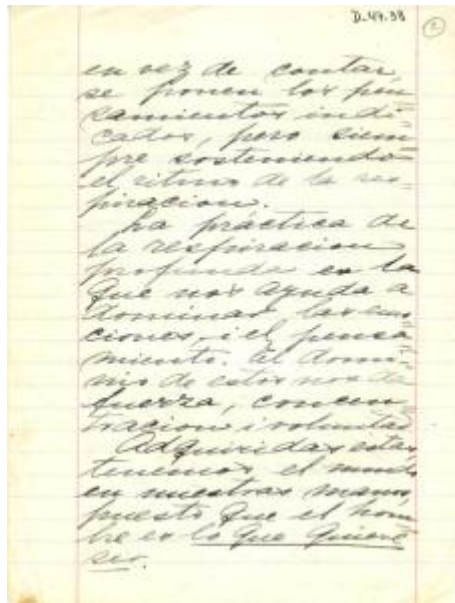 D-49.38
2
en vez de contar,
se ponen los pen=
samientos indi=
cados, pero siem=
pre sosteniendo
el ritmo de la res=
piracion.
La práctica de
la respiracion
profunda es la
que nos ayuda a
dominar las emo
ciones, i el pensa
miento. El domi=
nio de estos nos da
fuerza, concen=
tracion i voluntad
Adquiridas estas
tenemos el mundo
en nuestras manos,
puesto que el hom
bre es lo que quiere
ser.